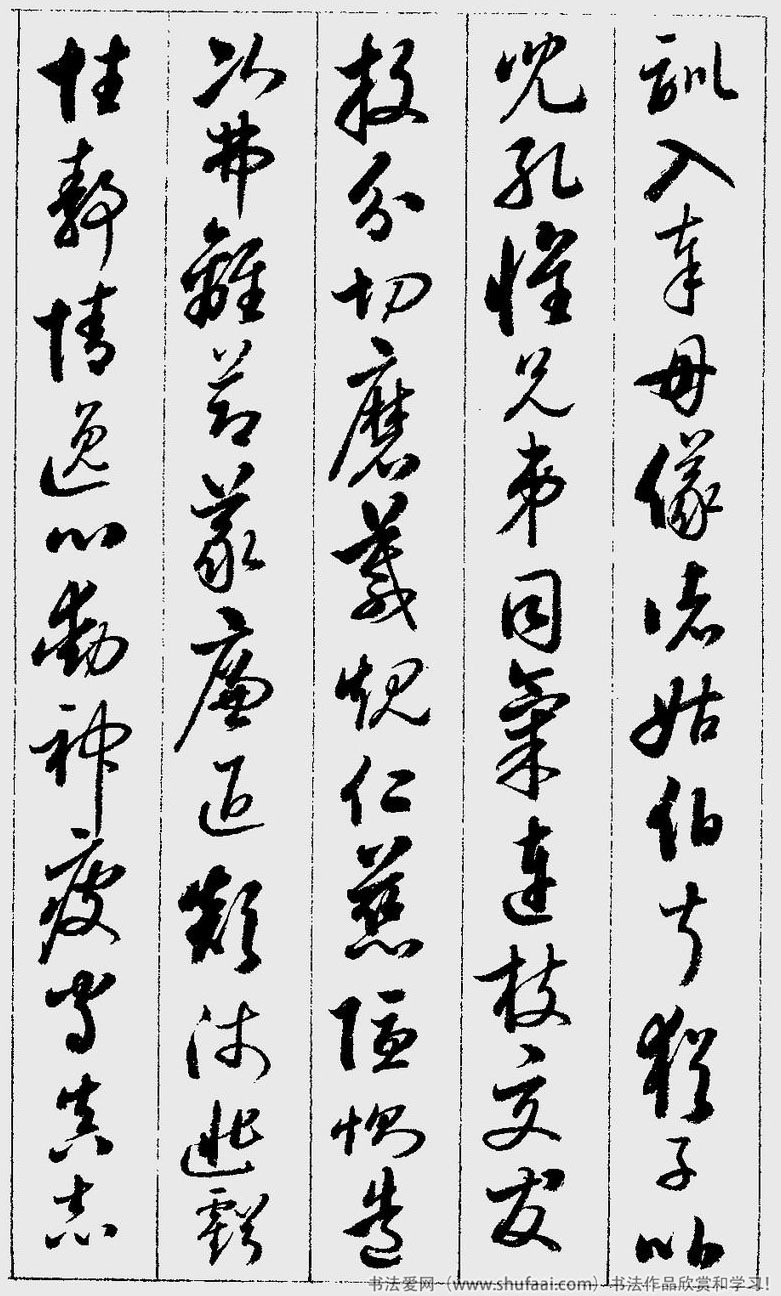 訓入奉母儀諸姑伯叔猶子比
兒孔懷兄弟同氣連枝交友
投分切磨箴規仁慈隱惻造
次弗離節義廉退顛沛匪虧
性靜情逸心動神疲守真志
书法爱网（www.shufaai.com）书法作品欣赏和学习!